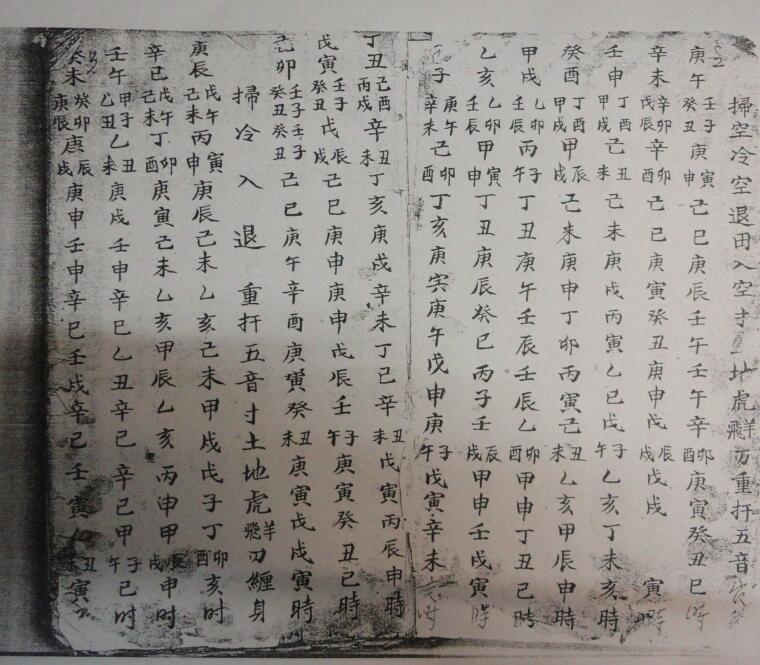 掃空冷空退田入空寸一地虎飛羊刃重扞五音
庚午壬子癸丑庚寅申己巳庚辰壬午壬午辛卯酉庚寅癸丑巳時
辛未辛卯戊辰辛卯酉己巳庚寅癸丑庚申戊辰戌戊戌寅時
壬申丁酉甲戌己丑未己未庚戌丙寅乙巳戊子午乙亥丁未亥時
癸酉丁酉甲戌甲辰戌己未庚申丁卯丙寅己丑未乙亥甲辰申時
甲戌乙卯壬辰丙子午丁丑庚午壬辰壬辰乙卯酉甲申丁丑巳時
乙亥乙卯壬辰甲寅申丁丑庚辰癸巳丙子壬辰戌甲申壬戌寅時
子庚午辛未己卯酉丁亥庚寅庚午戊申庚子午戊寅辛未亥時
丁丑己酉丙戌辛丑未丁亥庚戌辛未丁巳辛丑未戊寅丙辰申時
戊寅壬子癸丑戊辰戌己巳庚申庚申戊辰壬子午庚寅癸丑巳時
己卯壬子壬子癸丑癸丑己巳庚午辛酉庚寅癸丑未庚寅戊戌寅時
掃冷入退重扞五音寸土地虎飛羊刃纏身
庚辰戊午己未丙寅申庚辰己未乙亥己未甲戌戊子丁卯酉亥時
辛巳戊午己未丁卯酉庚寅己未乙亥甲辰乙亥丙申甲辰戌申时
壬午甲子乙丑乙丑未庚戌壬申辛巳乙丑辛巳辛巳甲子午巳时
癸未癸卯庚辰庚辰戌庚申壬申辛巳壬戌辛巳壬寅丑未寅时